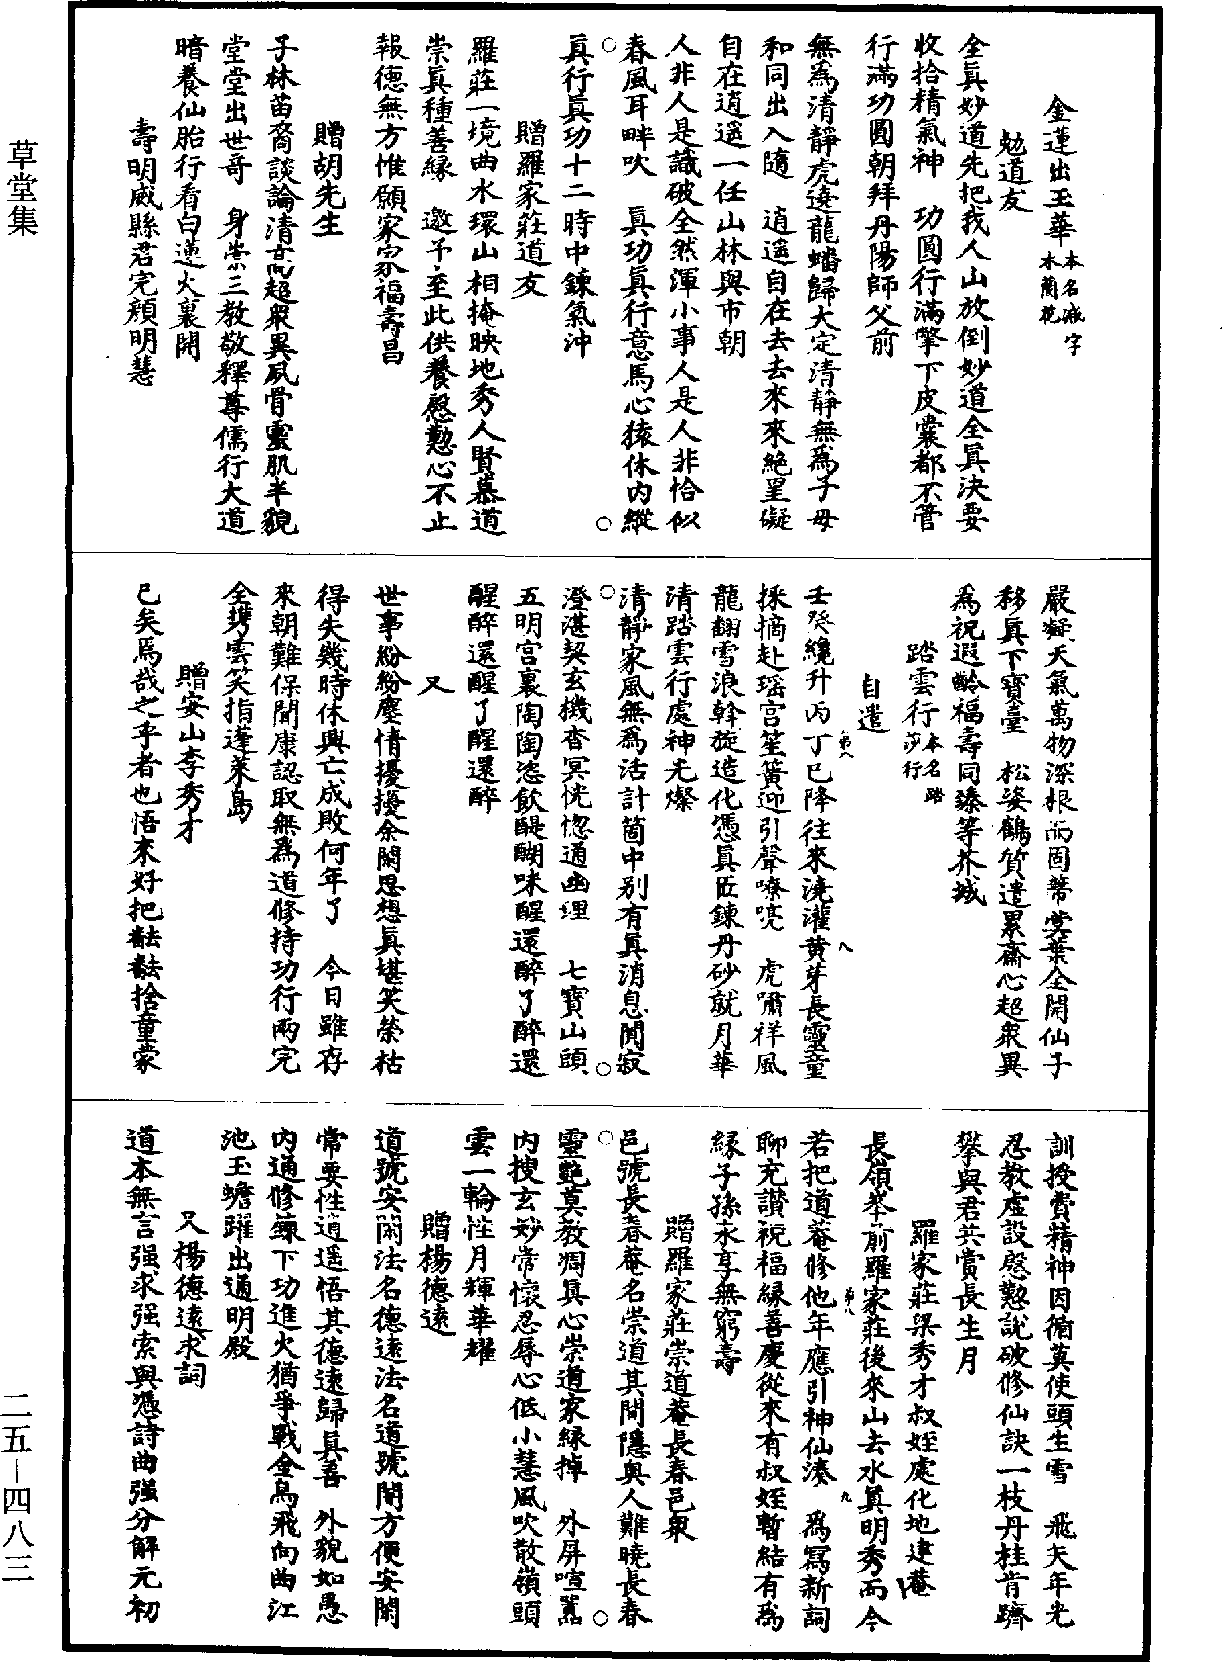 草堂集
金蓮出玉華本名減字木蘭花
勉道友
全真妙道先把我人山放倒妙道全真決要
收拾精氣神　功圓行滿擎下皮囊都不管
行滿功圓朝拜丹陽師父前
無為清靜虎遶龍蟠歸大定清靜無為子母
和同出入隨　逍遥自在去去來來絕罣礙
自在逍遥一任山林與市朝
人非人是識破全然渾小事人是人非恰似
春風耳畔吹　真功真行意馬心猿休内縱
真行真功十二時中鍊氣沖
贈羅家莊道友
羅莊一境曲水環山相掩映地秀人賢慕道
崇真種善緣　邀予至此供養慇懃心不止
報德無方惟願家家福壽昌
贈胡先生
子林苗裔談論清高超眾異夙骨靈肌半貌
堂堂出世哥　身崇三教敬釋尊儒行大道
暗養仙胎行看白蓮火裏開
壽明威縣君完顏明慧
嚴凝天氣萬物深根而固蒂蓂葉全開仙子
移真下寶臺　松姿鶴質遣累齋心超眾異
為祝遐齡福壽同臻等芥城
踏雲行本名踏莎行
自遣
壬癸纔升丙丁已降往來澆灌黃芽長靈童
採摘赴瑶宫笙簧迎引聲嘹喨　虎嘯祥風
龍翻雪浪斡旋造化憑真匠鍊丹砂就月華
清踏雲行處神光燦
清靜家風無為活計箇中别有真消息閒寂
澄湛契玄機杳冥恍惚通幽理　七寶山頭
五明宫裏陶陶恣飲醍醐味醒還醉了醉還
醒醉還醒了醒還醉
又
世事紛紛塵情擾擾余閑思想真堪笑榮枯
得失幾時休興亡成敗何年了　今日雖存
來朝難保閒康認取無為道修持功行兩完
全携雲笑指蓬萊島
贈安山李秀才
已矣焉哉之乎者也悟來好把都都捨童蒙
訓授費精神因循莫使頭生雪　飛矢年光
忍教虚設慇懃説破修仙訣一枝丹桂肯躋
攀與君共賞長生月
羅家莊梁秀才叔姪處化地建菴
長嶺峯前羅家莊後來山去水真明秀而今
若把道菴修他年應引神仙湊　為寫新詞
聊充讚祝福緣善慶從來有叔姪暫結有為
緣子孫永享無窮壽
贈羅家莊崇道菴長春邑眾
邑號長春菴名崇道其間隱奥人難曉長春
靈艷莫教凋真心崇道家緣掉　外屏喧囂
内搜玄妙常懷忍辱心低小慧風吹散嶺頭
雲一輪性月輝華耀
贈楊德遠
道號安閑法名德遠法名道號開方便安閑
常要性逍遥悟其德遠歸真善　外貌如愚
内通修鍊下功進火猶爭戰金烏飛向曲江
池玉蟾躍出通明殿
又楊德遠求詞
道本無言强求强索與憑詩曲強分解元初
二五—四八三